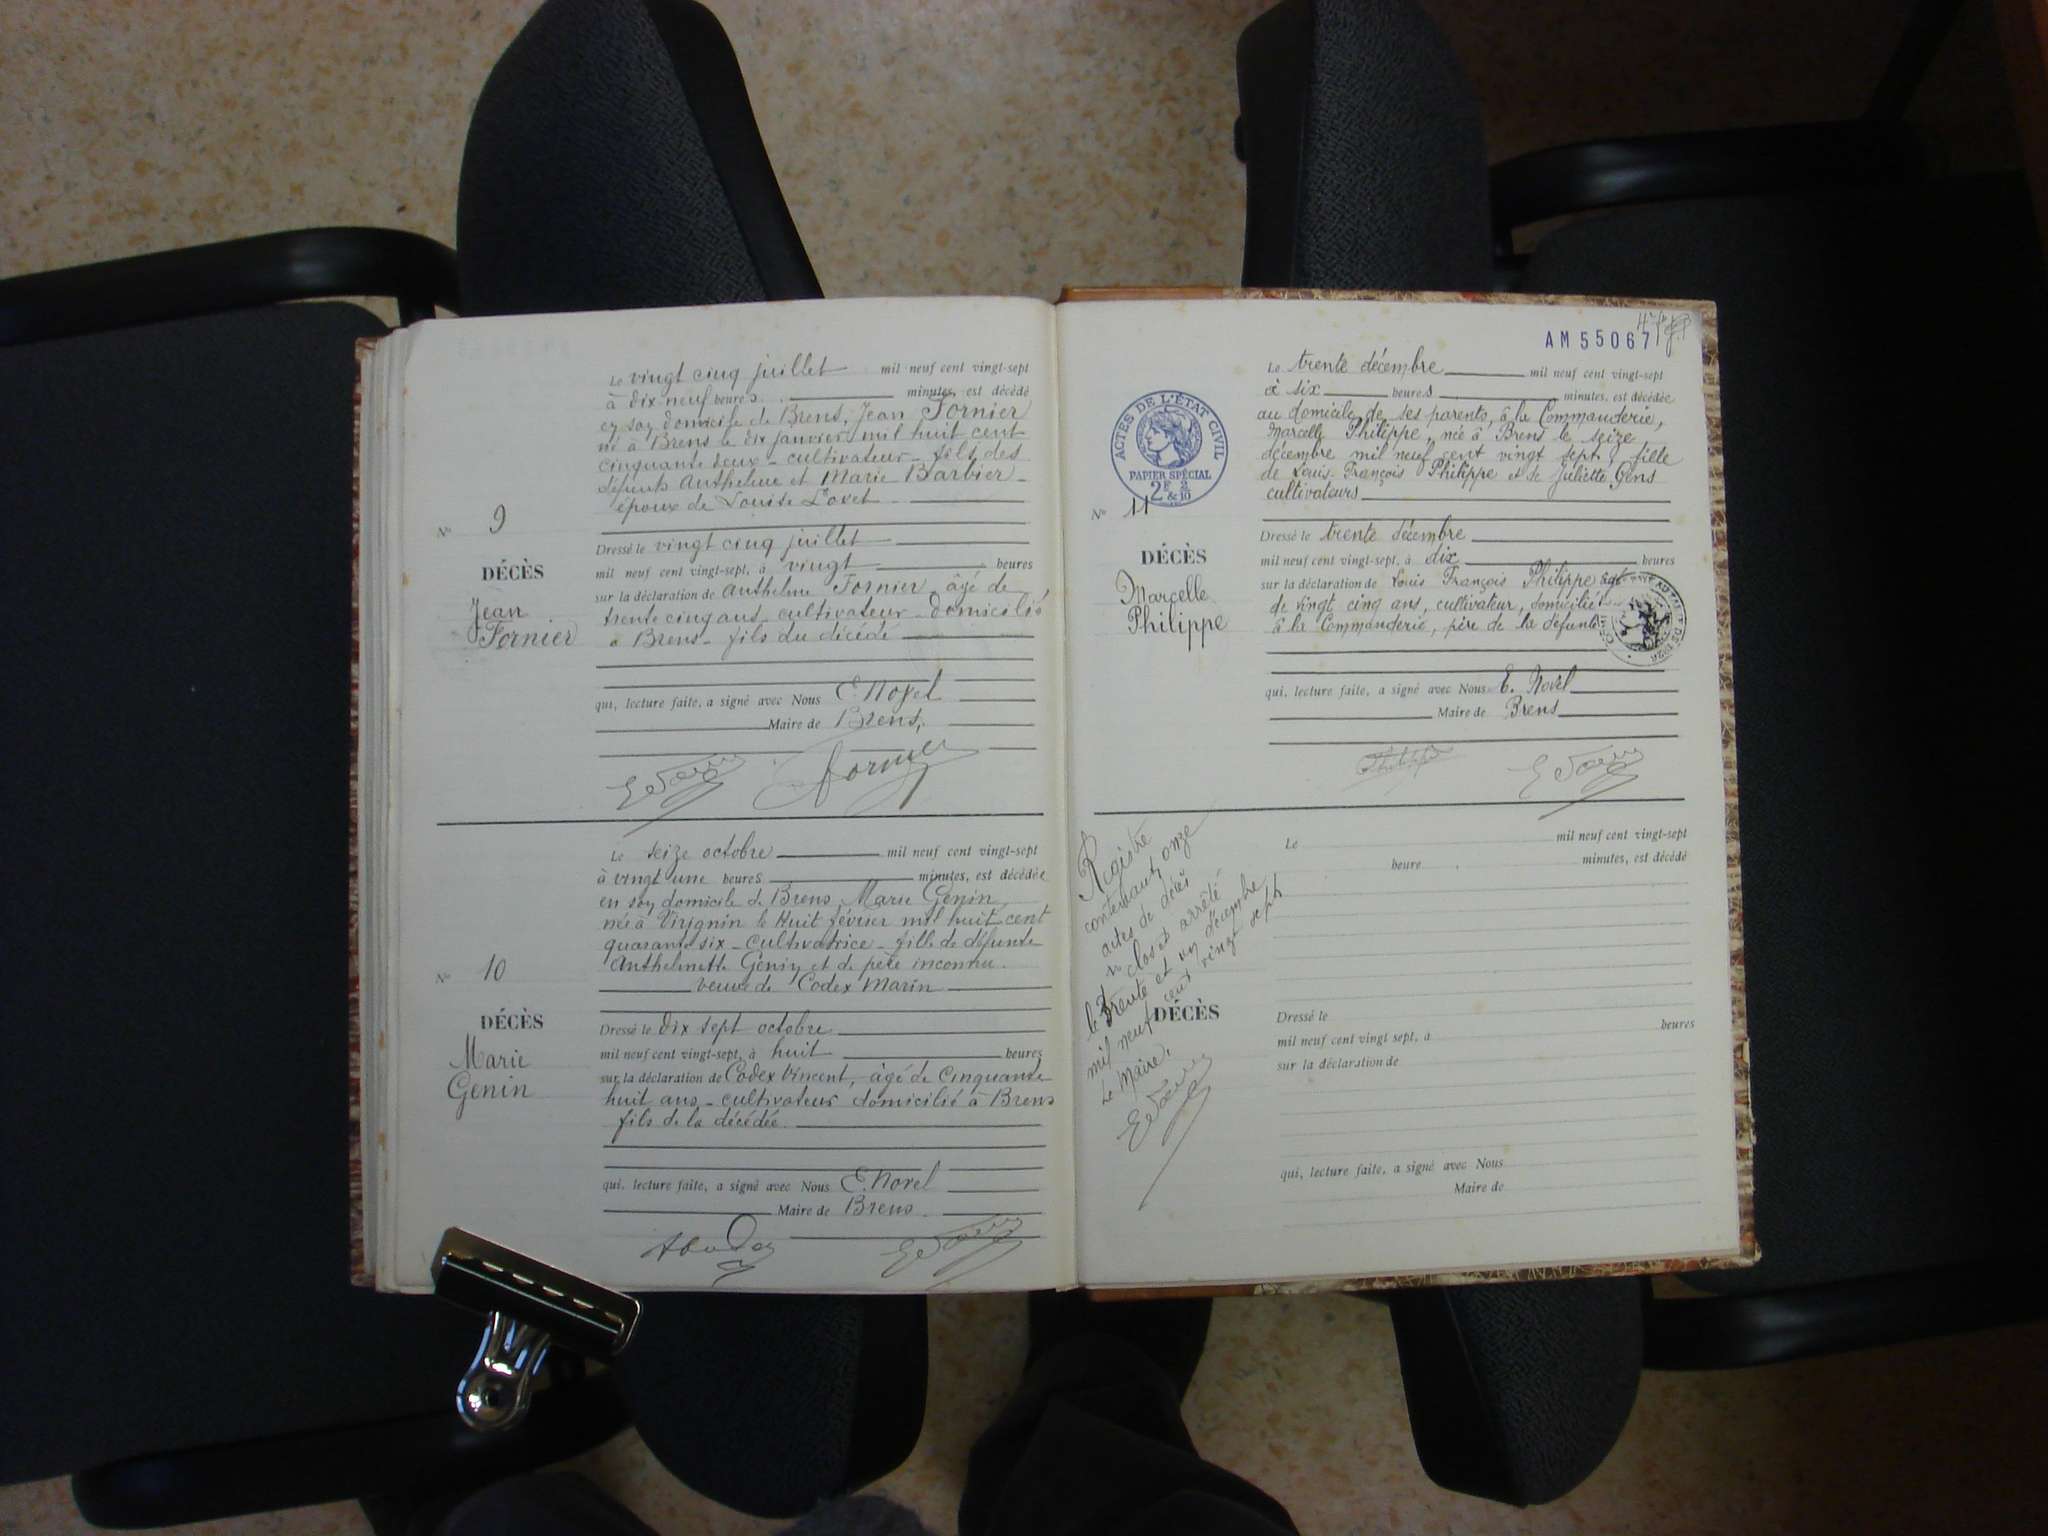 Le vingt cinq juillet mil neuf cent vingt-sept
à dix neuf heures minutes, est décédé
en son domicile de Brens, Jean Fornier
né à Brens le dix janvier mil huit cent
cinquante deux - cultivateur - fils des
défunts Anthelme et Marie Barbier -
époux de Louise
N° 9
DÉCÈS
Jean
Fornier
Dressé le vingt cinq juillet
mil neuf cent vingt-sept, à vingt heures
sur la déclaration de Anthelme Fornier, âgé de
trente cinq ans, cultivateur - domicilié
à Brens - fils du décédé
qui, lecture faite, a signé avec Nous E. Novel
Maire de Brens,
Fornier
Le seize octobre mil neuf cent vingt-sept
à vingt une heures minutes, est décédée
en son domicile de Brens Marie Genin
née à Virignin le huit février mil huit cent
quarante six - cultivatrice - fille de défunte
Anthelmette Genin et de père inconnu.
veuve de Codex Marin
N° 10
DÉCÈS
Marie
Genin
Dressé le dix sept octobre
mil neuf cent vingt-sept, à huit heures
sur la déclaration de Codex Vincent, âgé de cinquante
huit ans - cultivateur domicilié à Brens
fils de la décédée.
qui, lecture faite, a signé avec Nous E. Novel
Maire de Brens.
AM 55067
ACTES DE L'ÉTAT CIVIL
PAPIER SPÉCIAL
2F 2/10
Le trente décembre mil neuf cent vingt-sept
à six heures minutes, est décédée
au domicile de ses parents, à la Commanderie,
Marcelle Philippe, née à Brens le seize
décembre mil neuf cent vingt sept, fille
de Louis-François Philippe et de Juliette Gens
cultivateurs
N° 11
DÉCÈS
Marcelle
Philippe
Dressé le trente décembre
mil neuf cent vingt-sept, à dix heures
sur la déclaration de Louis François Philippe âgé
de vingt cinq ans, cultivateur, domicilié
à la Commanderie, père de la défunte
qui, lecture faite, a signé avec Nous E. Novel
Maire de Brens
Philippe
Registre
contenant onze
actes de décès
clos et arrêté
le trente et un décembre
mil neuf cent vingt sept
Le Maire,
Le mil neuf cent vingt-sept
heure minutes, est décédé
DÉCÈS
Dressé le
mil neuf cent vingt sept, à heures
sur la déclaration de
qui, lecture faite, a signé avec Nous
Maire de